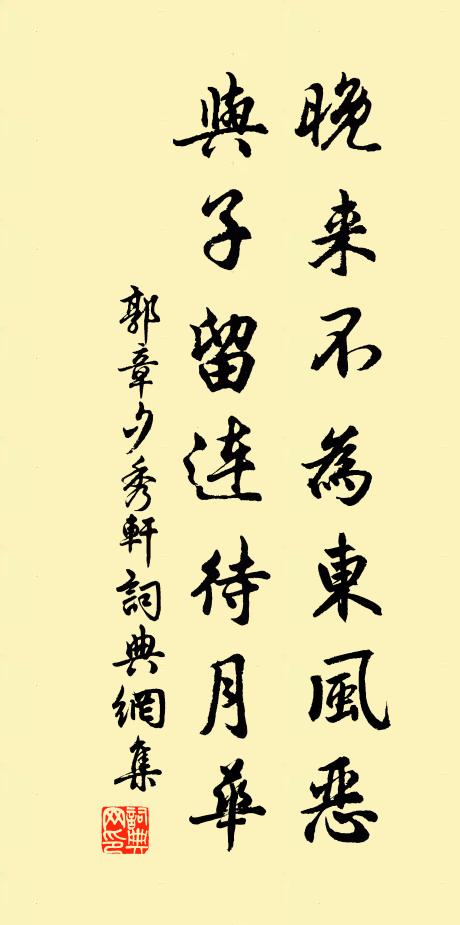 晚来不為東風惡
與子留连待月華
郭章夕秀軒詞典網集
詞典网印